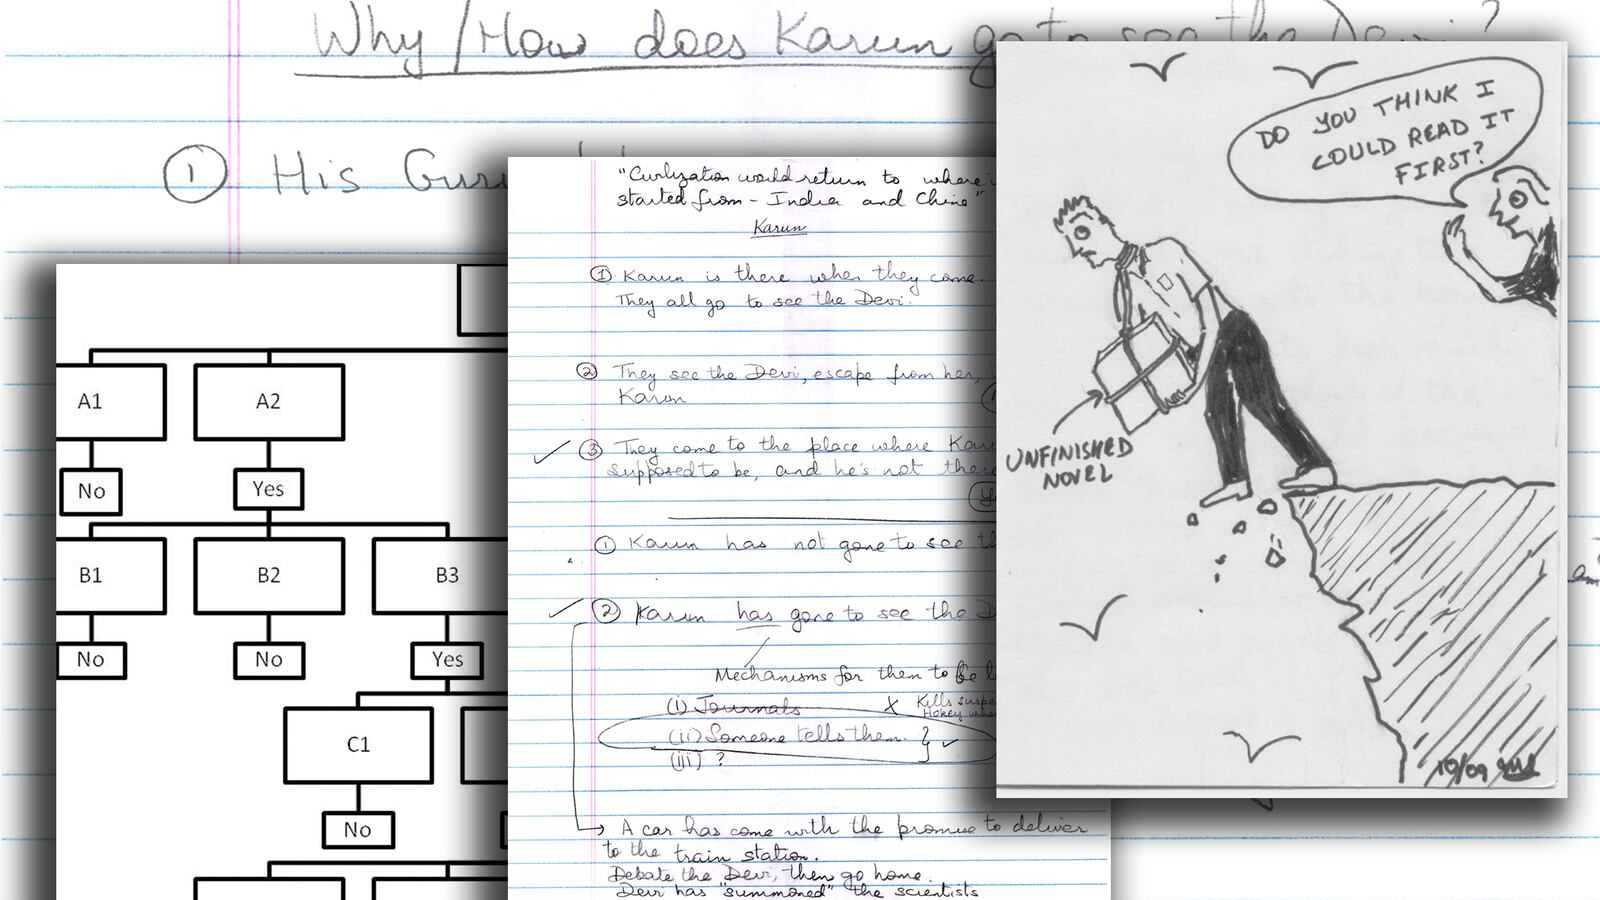 Why/How does Karun go to see the Devi?
① His Guru
"Curlization would return to where i
started from - India and China"
Karun
① Karun is there when they come.
They all go to see the Devi.
② They see the Devi, escape from her,
Karun
③ They come to the place where Kar
supposed to be, and he's not there
① Karun has not gone to see th
② Karun has gone to see the D
Mechanisms for them to be l
(i) Journals X Kills suspe
Hokey wha
(ii) Someone tells them.
(iii) ?
A car has come with the promise to deliver
to the train station.
Debate the Devi, then go home.
Devi has "summoned" the scientists
A1 A2
No Yes
B1 B2 B3
No No Yes
C1
No
DO YOU THINK I
COULD READ IT
FIRST?
UNFINISHED
NOVEL
10/09